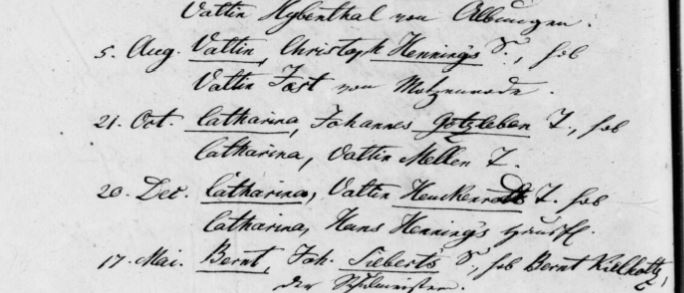 Valtin Hybenthal von Albungen.
5. Aug. Valtin, Christoph Hennings S., hob
Valtin Jost von Motzenrode.
21. Oct. Catharina, Johannes Gotzleben T., hob
Catharina, Valtin Mellen T.
20. Dec. Catharina, Valtin Heuckenroth T. hob
Catharina, Hans Hennings
17. Mai. Bernt, Joh. Sieberts S., hob Bernt Kielholtz,
der Schulmeister.